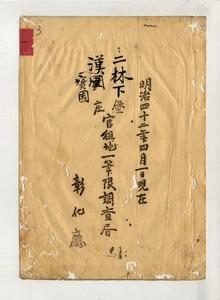 明治四十二年四月一日現在
二林下堡
漢寶園庄
官租地一筆限調查
彰化廳
3